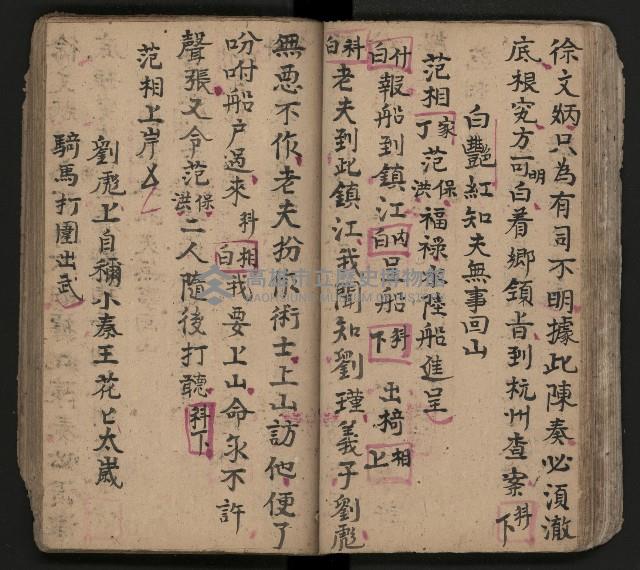 徐文炳只為有司不明據此陳奏必須澈
底根究方可明白着鄉領旨到杭州查案科下
白艷紅知夫無事回山
范相丁家范洪保福祿陸船進呈
什白報船到鎮江内白呂船科下出椅相上
科白老夫到此鎮江我聞知劉瑾義子劉彪
無惡不作老夫扮作術士上山訪他便了
吩咐船户過來科相白我要上山命永不許
聲張又令范洪保二人隨後打聽科下
范相上岸
劉彪上自稱小秦王花匕太崴
騎馬打圍出武
高雄市立歷史博物館
KAOHSIUNG MUSEUM OF HISTORY